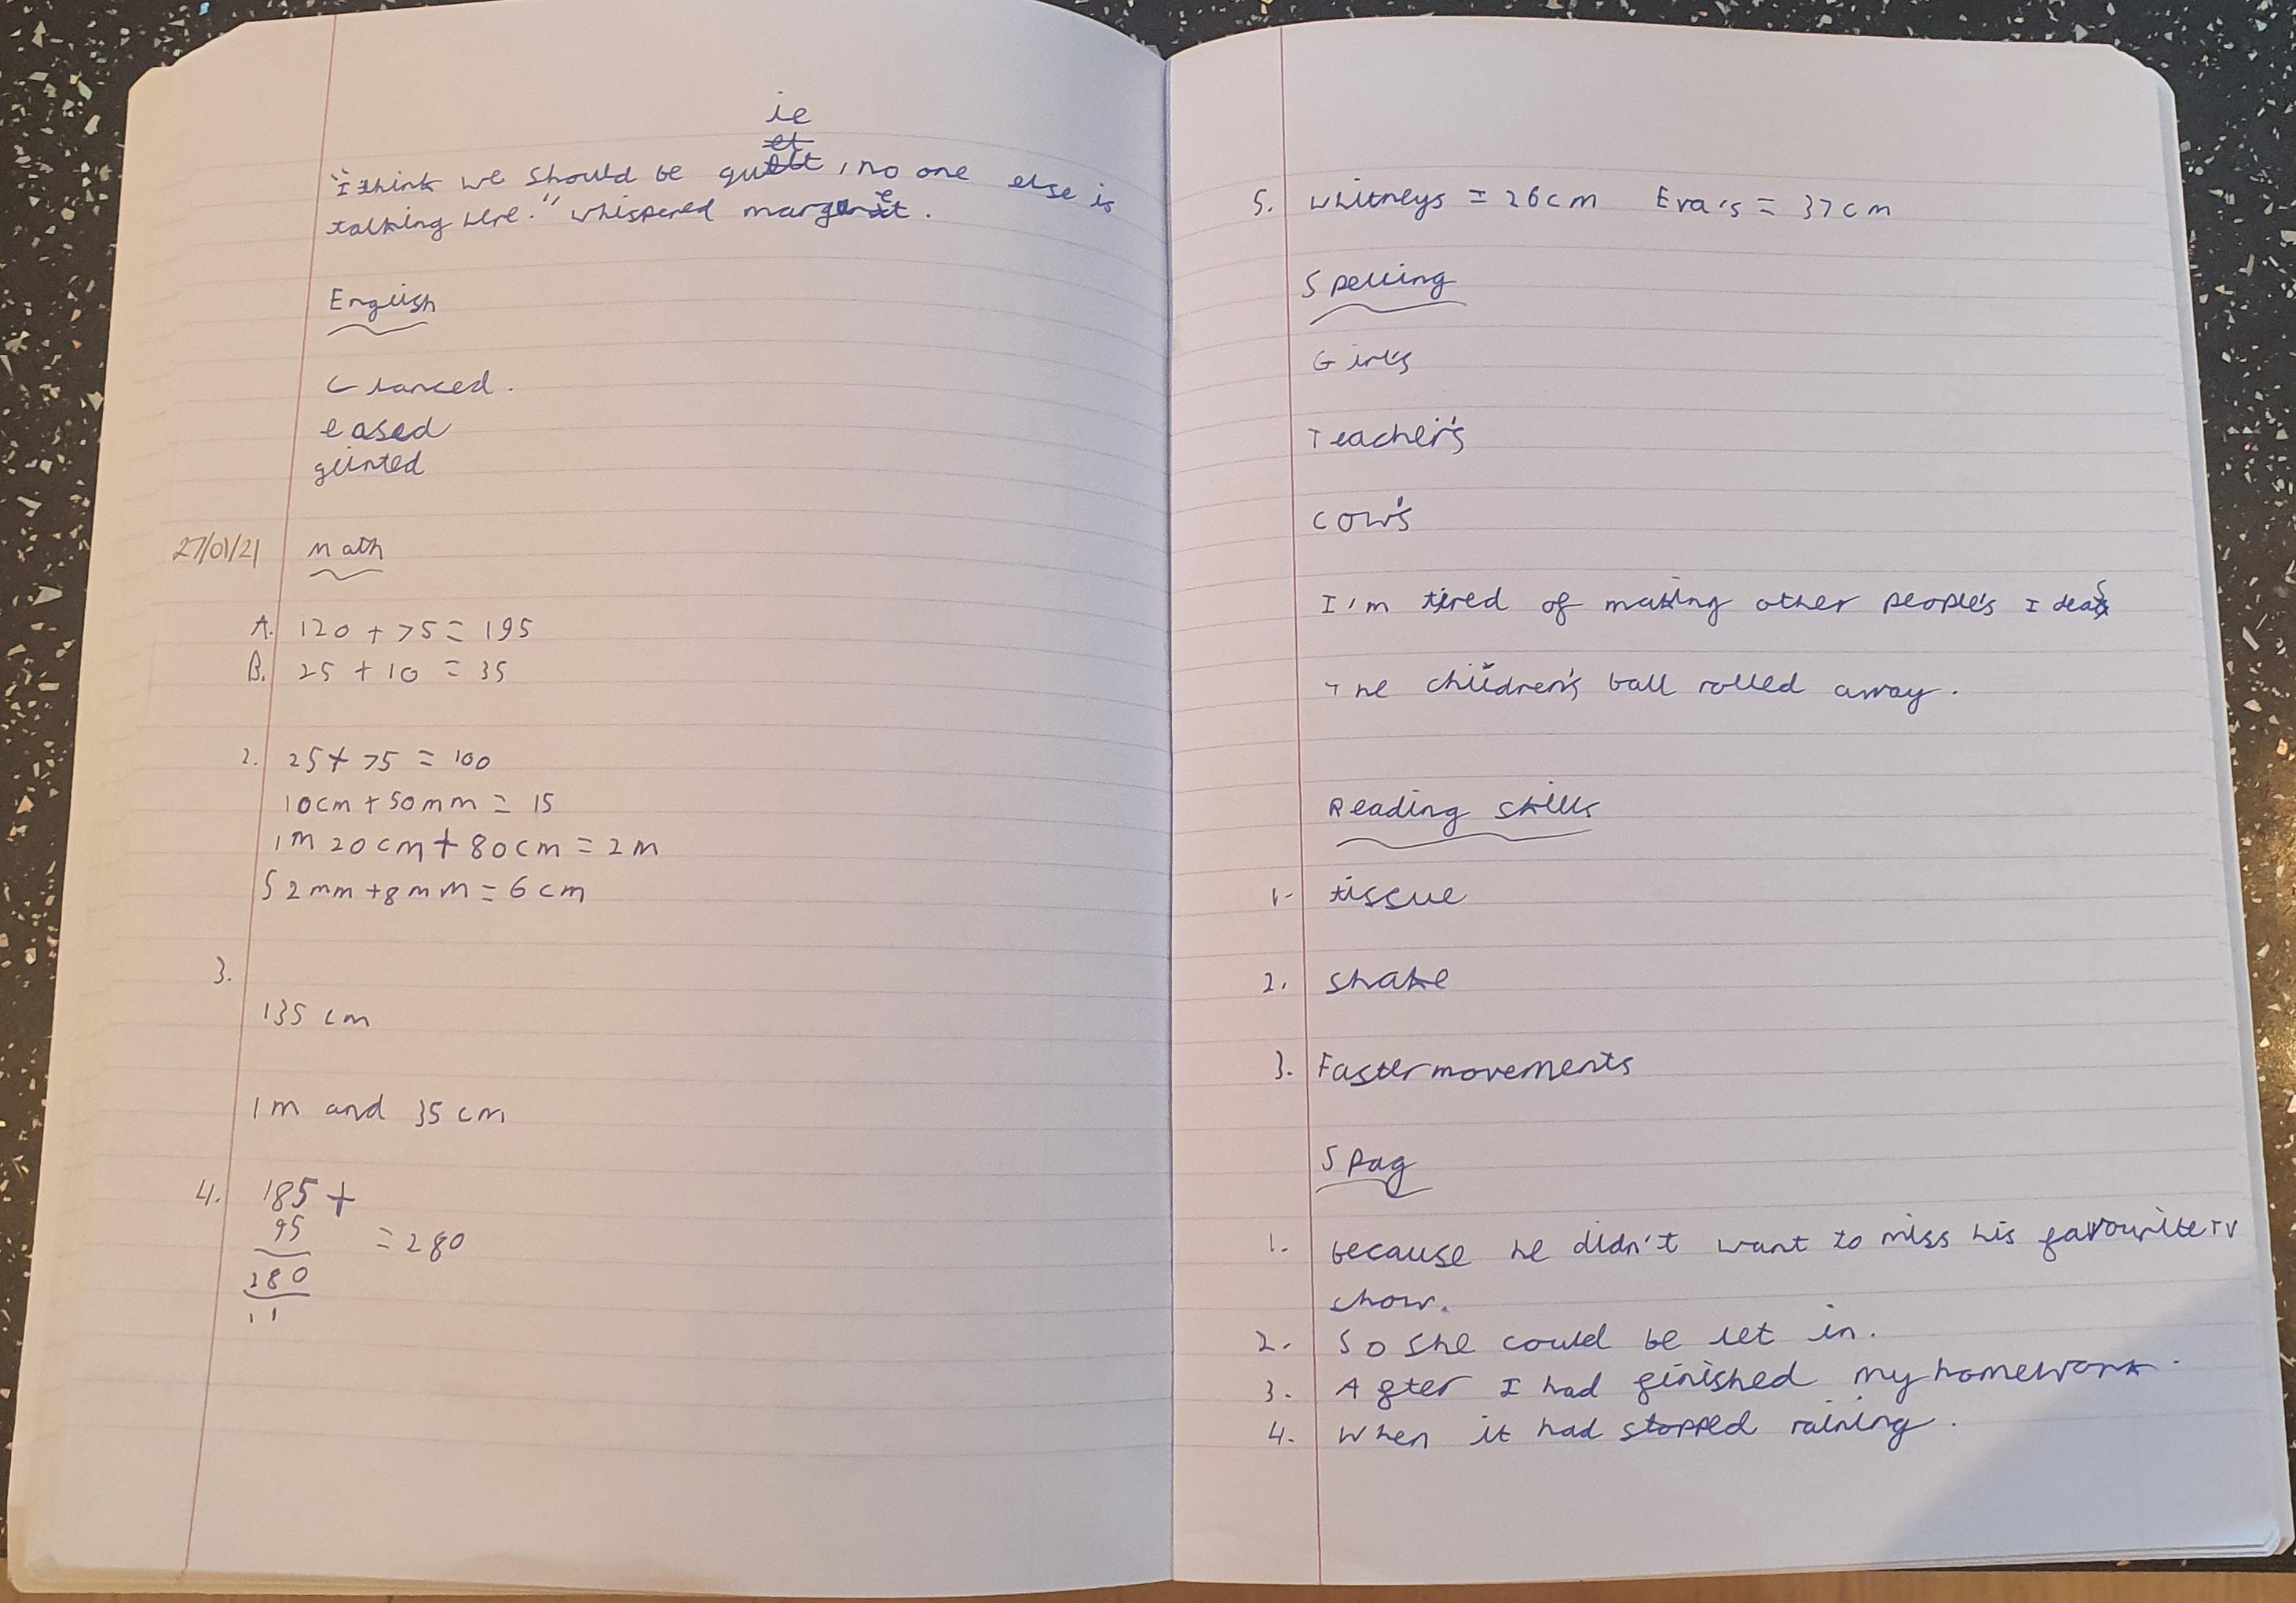 ie
"I think we should be qu , no one else is
talking here." whispered margaret.
English
Glanced.
eased
glinted
27/01/21 Math
A. 120 + 75 = 195
B. 25 + 10 = 35
2. 25 + 75 = 100
10cm + 50mm = 15
1m 20cm + 80cm = 2m
52mm + 8mm = 6cm
3.
135 cm
1m and 35cm
4. 185 +
95
= 280
280
11
5. Whitneys = 26cm Eva's = 37cm
Spelling
Girl's
Teacher's
Cow's
I'm tired of making other people's I deas
The children's ball rolled away.
Reading skills
1. tissue
2. shake
3. Faster movements
Spag
1. because he didn't want to miss his favourite TV
show.
2. So she could be let in.
3. After I had finished my homework.
4. When it had stopped raining.